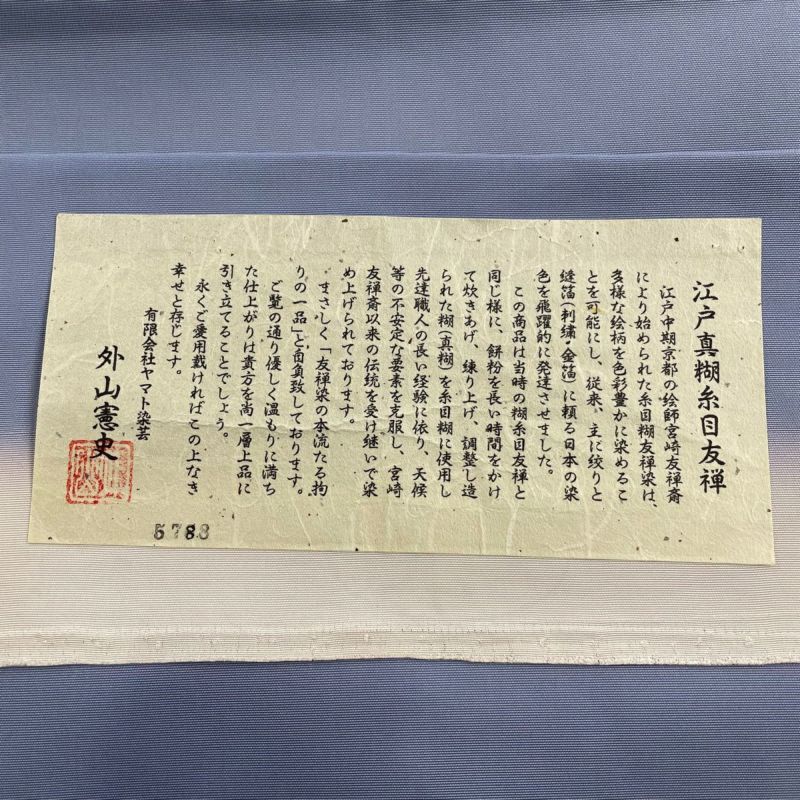 江戸真糊糸目友禅
江戸中期京都の絵師宮崎友禅斎
により始められた糸目糊友禅染は、
多様な絵柄を色彩豊かに染めるこ
とを可能にし、従来、主に絞りと
縫箔(刺繍・金箔)に頼る日本の染
色を飛躍的に発達させました。
この商品は当時の糊糸目友禅と
同じ様に、餅粉を長い時間をかけ
て炊きあげ、練り上げ、調整し造
られた糊(真糊)を糸目糊に使用し
先達職人の長い経験に依り、天候
等の不安定な要素を克服し、宮崎
友禅斎以来の伝統を受け継いで染
め上げられております。
まさしく「友禅染の本流たる拘
りの一品」と自負致しております。
ご覧の通り優しく温もりに満ち
た仕上がりは貴方を尚一層上品に
引き立てることでしょう。
永くご愛用戴ければこの上なき
幸せと存じます。
有限会社ヤマト染芸
外山憲史
5783